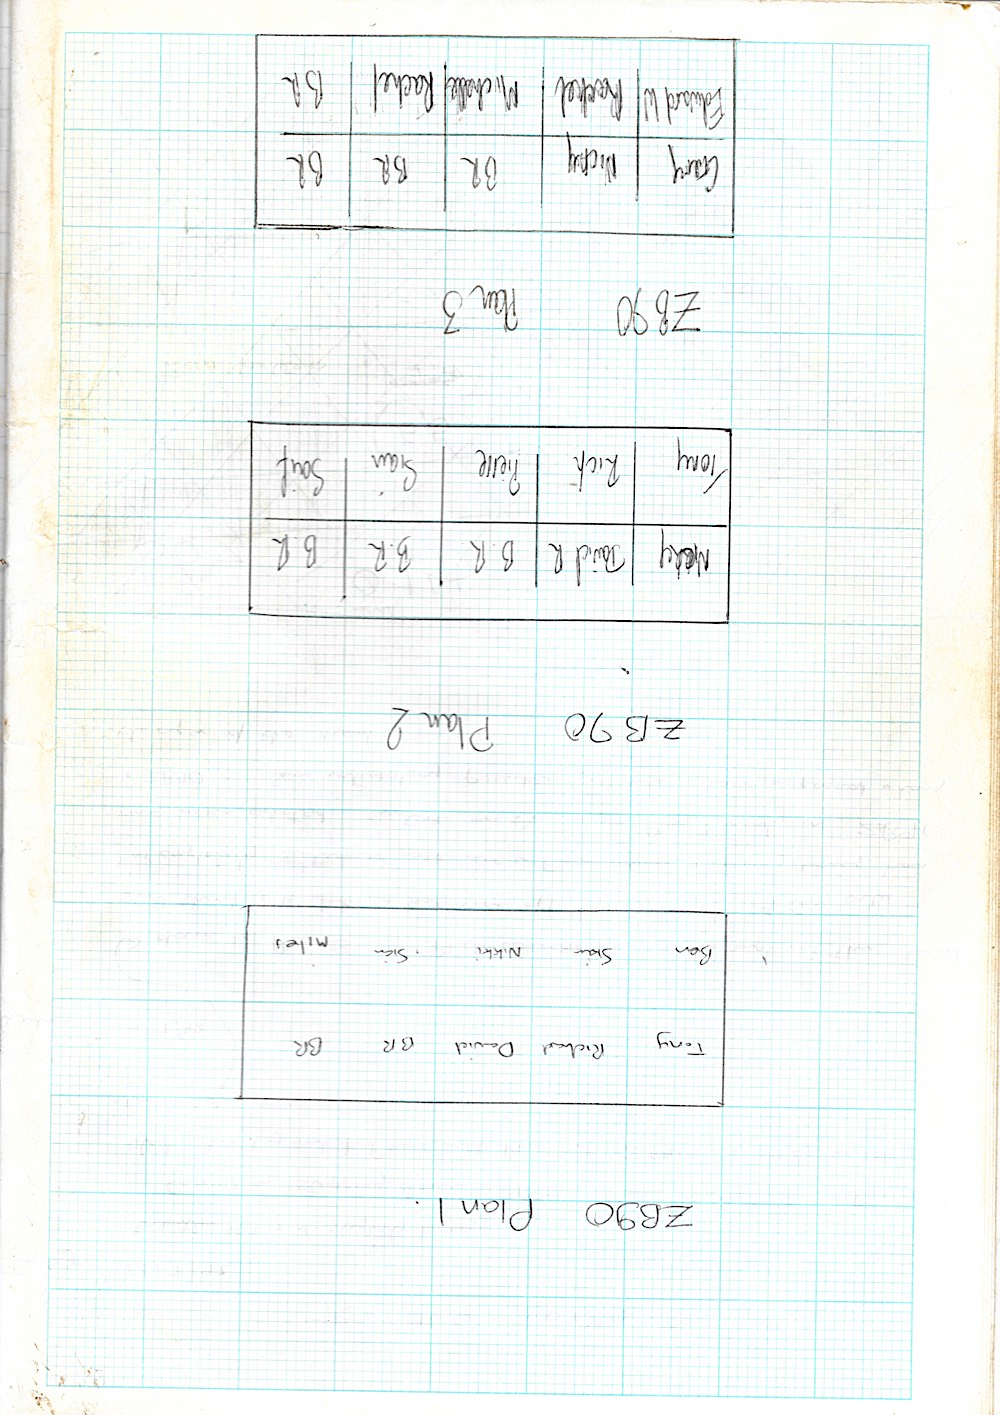 ZB90 Plan 1.
Tony Richard David BR BR
Ben Siân Nikki Siân miles
ZB90 Plan 2
Nicky David R B.R B.R B.R
Tony Rich Pierre Siân Saif
ZB90 Plan 3
Gary Nicky BR BR BR
Edward W Rachel Michelle Rachel BR